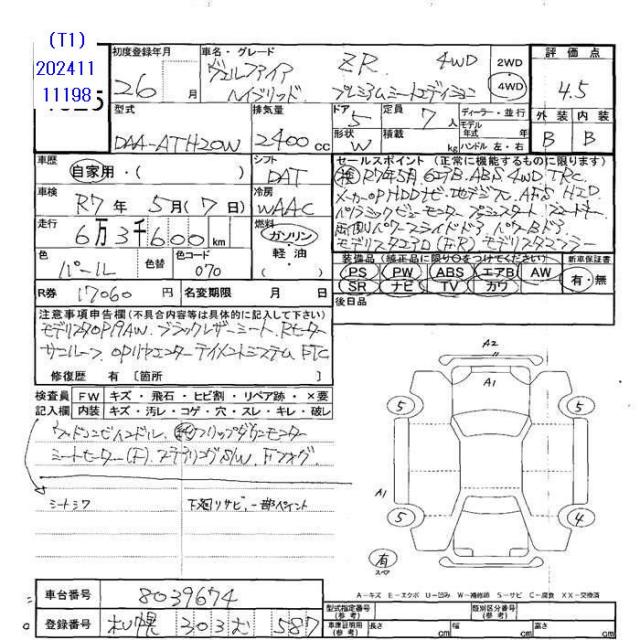 (T1)
202411
11198
初度登録年月
26 月
車名・グレード
ヴェルファイア ZR 4WD
ハイブリッド プレミアムシートエディション
2WD
4WD
評価点
4.5
型式
DAA-ATH20W
排気量
2400 cc
ドア
5
形状
W
定員
7 人
積載
kg
ディーラー・並行
モデル
年式 年
ハンドル 左・右
外装
B
内装
B
車歴
自家用・( )
シフト
DAT
車検
R7年 5月(7日)
冷房
WAAC
走行
6万3千600 km
燃料
ガソリン
軽・油
色
パール
色替
色コード
070
R券
17060 円
名変期限 月 日
セールスポイント(正常に機能するものに限ります)
検 R7年5月 6エアB. ABS 4WD TRC.
メーカーOP HDDナビ・地デジ. AFS HID
パノラミックビューモニター プッシュスタート
両側パワースライドドア パワーBドア.
モデリスタエアロ(F.R) モデリスタマフラー
装備品(純正品に限り○をつけてください)
新車保証書
PS PW ABS エアB AW
SR ナビ TV カワ
有・無
後日品
注意事項申告欄(不具合内容等は具体的に記入して下さい)
モデリスタOP19AW. ブラックレザーシート. Rモニター
サンルーフ. OPリヤエンターテイメントシステム ETC
修復歴 有 〔箇所 〕
検査員
記入欄
FW キズ・飛石・ヒビ割・リペア跡・×要
内装 キズ・汚レ・コゲ・穴・スレ・キレ・破レ
ウッドコンビハンドル. 純フリップダウンモニター
シートヒーター(F). ステアリングSW. Fフォグ.
シートシワ
下廻リサビ、一部ペイント
A2
A1
5
5
A1
5
4
有
スペア
A-キズ E-エクボ U-凹み W-補修跡 S-サビ C-腐食 XX-交換済
車台番号
8039674
登録番号
札幌 303 む 587
型式指定番号
(参考)
類別区分番号
(参考)
車庫証明用
(参考)
長さ cm
幅 cm
高さ cm